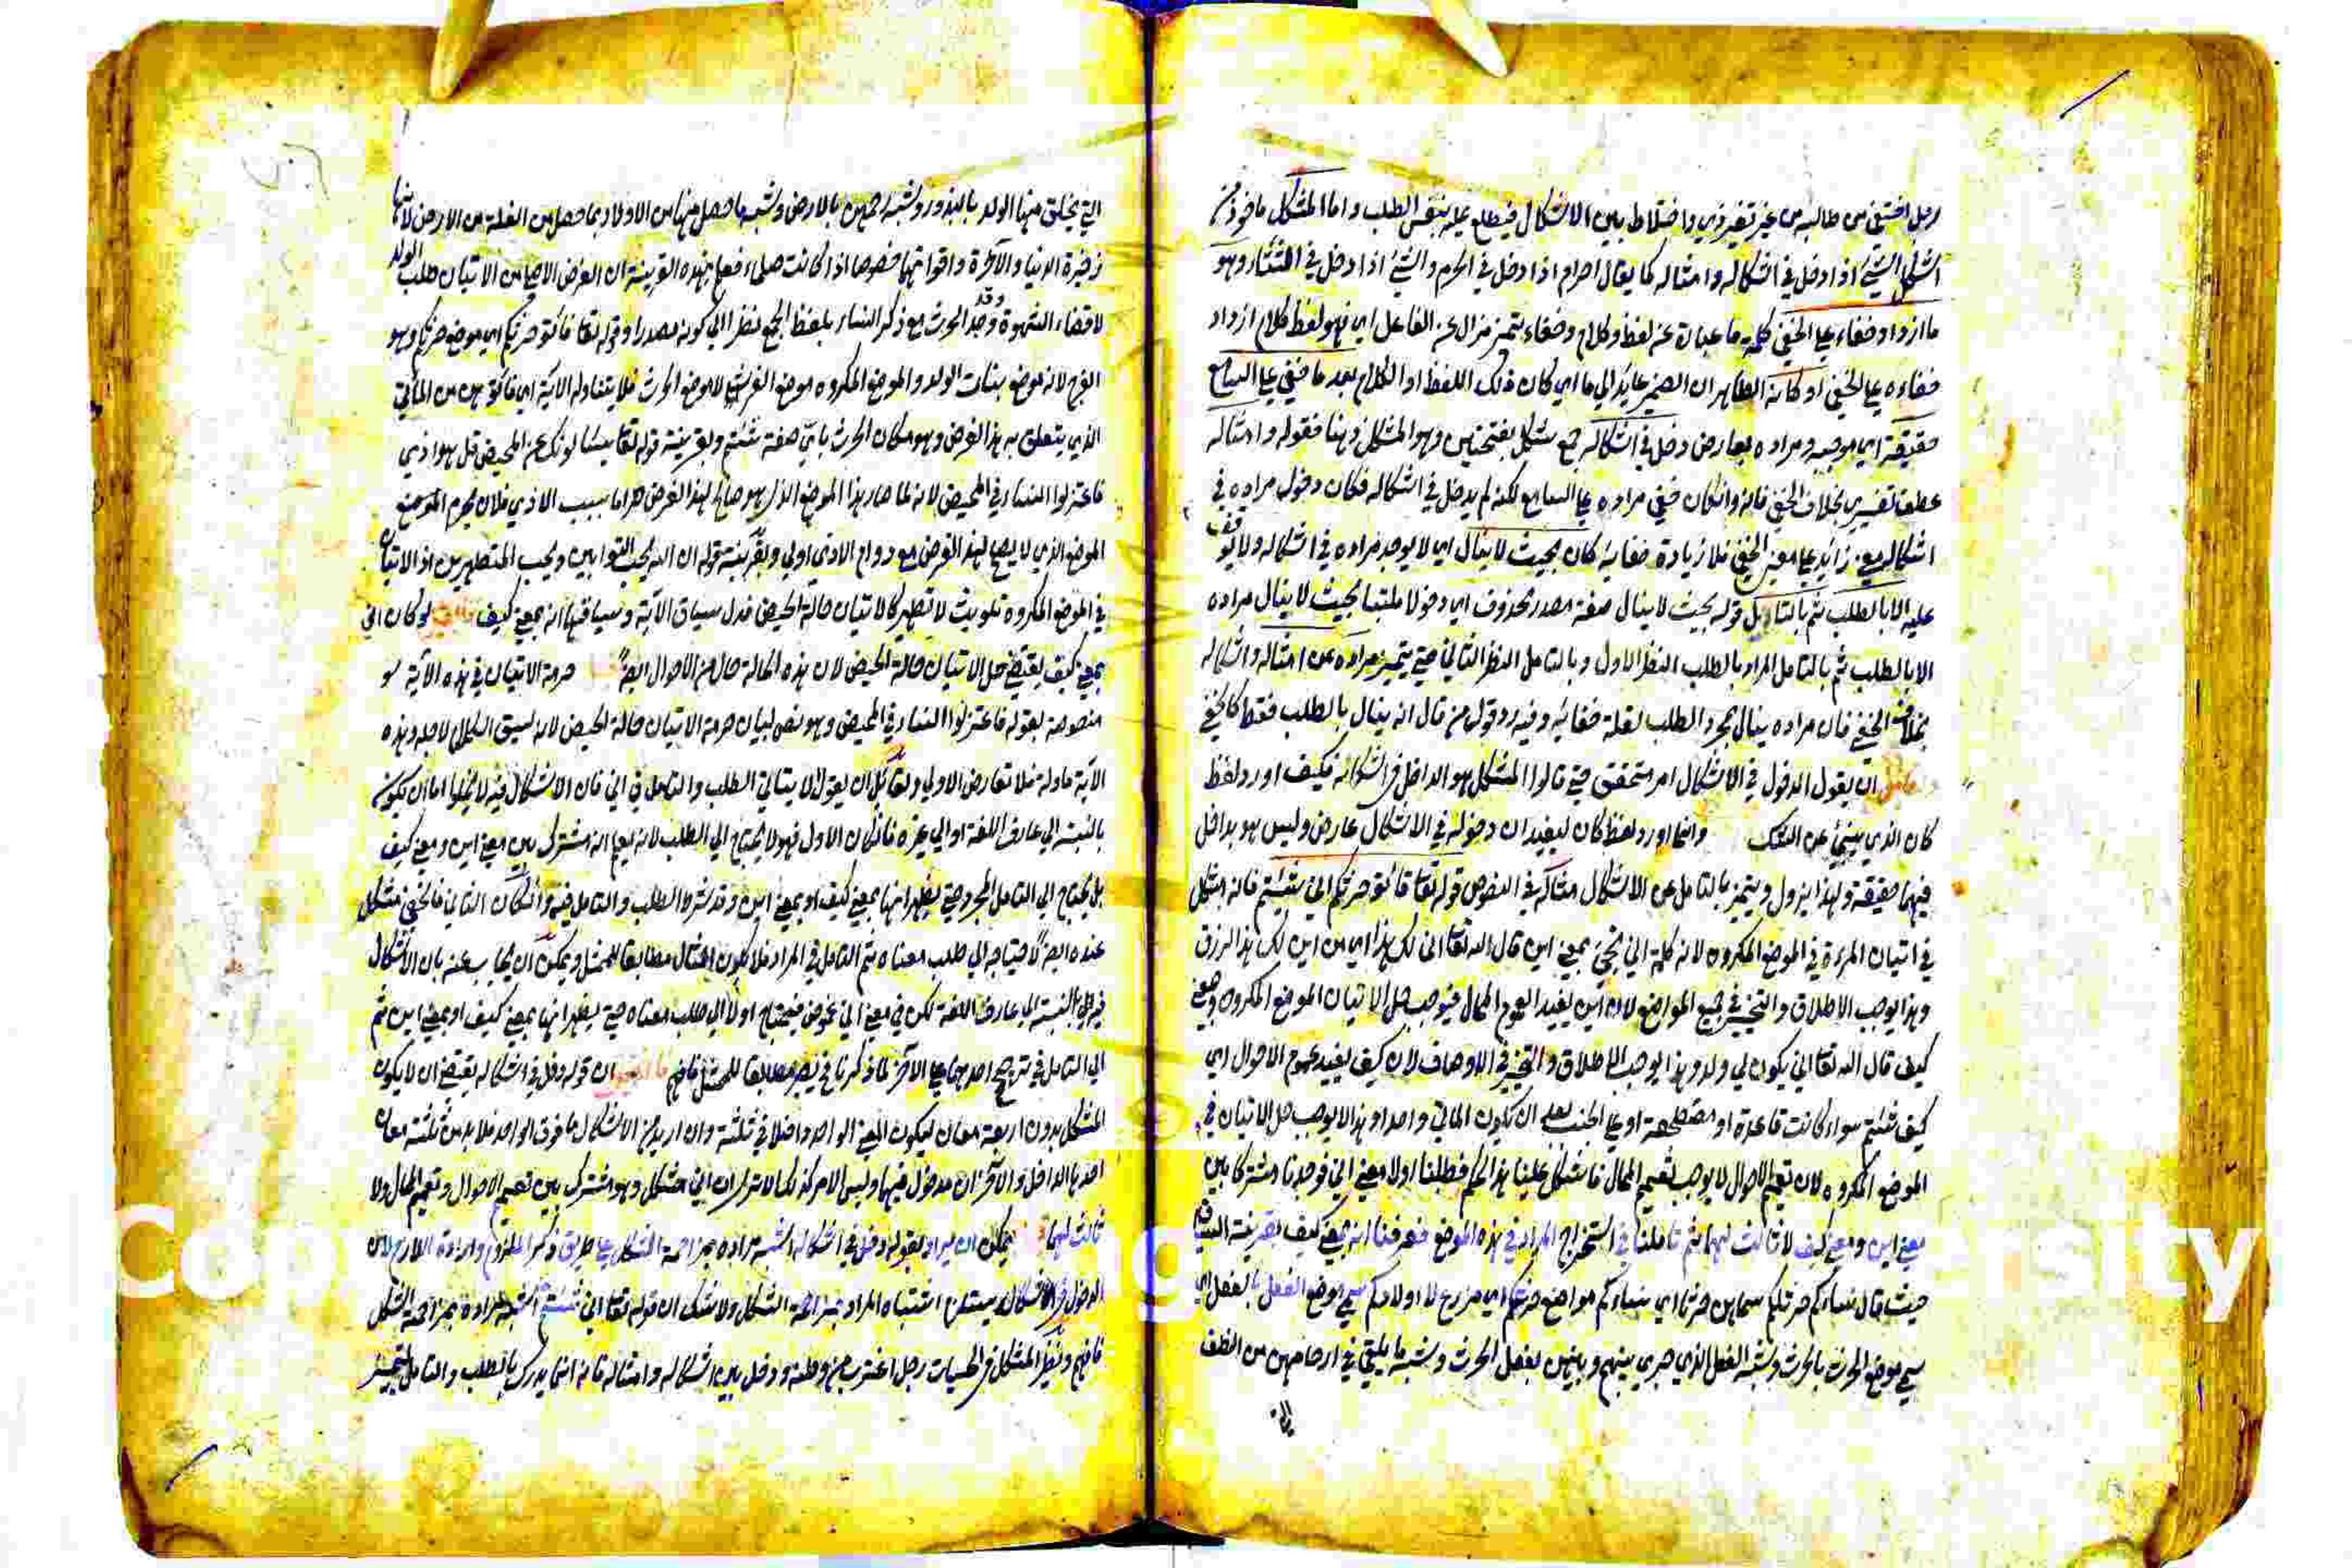 رجل اختفى من طالبه من غير تغير زي واختلاط بين الاشكال فيطلع عليه بنفس الطلب واما المشكل ماخوذ من
اشكل الشيء اذا دخل في اشكاله وامثاله كما يقال احرم اذا دخل في الحرم واشتى اذا دخل في الشتاء وهو
ما ازداد خفاء على الخفي كلمة ما عبارة عن لفظ وكلام وخفاء تميز مزال عن الفاعل اي فهو لفظ كلام ازداد
خفاءه على الخفي او كانه الظاهر ان الضمير عايد الى ما اي كان ذلك اللفظ او الكلام بعد ما خفي على السامع
حقيقته اي موجبه ومراده بعارض دخل في اشكاله جمع شكل بفتحتين وهو المشكل وهنا فقوله وامثاله
عطف تفسيري بخلاف الخفي فانه وان كان خفي مراده على السامع لكنه لم يدخل في اشكاله فكان دخول مراده في
اشكاله معنى زائد على معنى الخفي فلا زيادة خفائه كان بحيث لا ينال اي لا يوجد مراده في اشكاله ولا يوقف
عليه الا بالطلب ثم بالتامل قوله بحيث لا ينال صفة مصدر محذوف اي دخولا ملتبسا بحيث لا ينال مراده
الا بالطلب ثم بالتامل المراد بالطلب النظر الاول وبالتامل النظر الثاني حتى يتميز مراده عن امثاله واشكاله
بخلاف الخفي فان مراده ينال بمجرد الطلب لقلة خفائه وفيه رد قول من قال انه ينال بالطلب فقط كالخفي
ان يقول الدخول في الاشكال امر متحقق حتى قالوا المشكل هو الداخل في اشكاله فكيف اورد لفظ
كان الذي ينبئ عن الشك وانما اورد لفظ كان ليفيد ان دخوله في الاشكال عارض وليس هو بداخل
فيها حقيقة ولهذا يزول ويتميز بالتامل عن الاشكال مثاله في النصوص قوله تعا فاتو حرثكم انى شئتم فانه مشكل
في اتيان المرءة في الموضع المكروه لانه كلمة انى تجئ بمعنى اين قال الله تعا انى لك هذا اي من اين لك هذا الرزق
وهذا يوجب الاطلاق والتخير في جميع المواضع لان اين يفيد العموم المحال فيوجب حل الاتيان الموضع المكروه وبمعنى
كيف قال الله تعا انى يكون لي ولد وهذا يوجب الاطلاق والتخير في الاوصاف لان كيف يفيد عموم الاحوال اي
كيف شئتم سواء كانت قاعدة او مضطجعة او على الجنب بعد ان يكون الماتى واحدا وهذا لا يوجب حل الاتيان في
الموضع المكروه لان تعميم الاحوال لا يوجب تعميم المحال فاشكل علينا هذا الحكم فطلبنا اولا معنى انى فوجدنا مشتركا بين
معنى اين ومعنى كيف لا ثالث لهما ثم تاملنا في استخراج المراد في هذه الموضع فعرفنا انه بمعنى كيف بقرينة السياق
حيث قال نساءكم حرث لكم سماهن حرثا اي نساءكم مواضع حرثكم اي مزرع لاولادكم سمى موضع الفعل بالفعل اي
سمى موضع الحرث بالحرث وشبه الفعل الذي جرى بينهم وبينهن بفعل الحرث وشبه ما يلقى في ارحامهن من النطف
التي
التي يخلق منها الولد بالبذور وشبه رحمهن بالارض وشبه ما حصل منها من الاولاد بما حصل من الغلة من الارض لانها
ذخيرة الدنيا والآخرة واقواتها خصوصا اذا كانت صلحاء فعلم بهذه القرينة ان الغرض الاصلي من الاتيان طلب الولد
لا قضاء الشهوة وقد وحد الحرث مع ذكر النساء بلفظ الجمع نظرا الى كونه مصدرا وقوله تعا فاتو حرثكم اي موضع حرثكم وهو
الفرج لانه موضع بنات الولد والموضع المكروه موضع الفرث لا موضع الحرث فلا يتناوله الآية اي فاتو هن من الماتى
الذي يتعلق به هذا الغرض وهو مكان الحرث باي صفة شئتم وبقرينة قوله تعا يسئلونك عن المحيض قل هو اذي
فاعتزلوا النساء في المحيض لانه لما صار هذا الموضع الذي هو صالح لهذا الغرض حراما بسبب الاذي فلان يحرم الموضع
الموضع الذي لا يصلح لهذا الغرض مع دوام الاذى اولى وبقرينة قوله ان الله يحب التوابين ويحب المتطهرين اذ الاتيان
في الموضع المكروه تلويث لا تطهر كالاتيان حالة الحيض فدل سياق الآية وسياقها انه بمعنى كيف لو كان انى
بمعنى كيف يقتضي حل الاتيان حالة الحيض لان هذه الحالة حال من الاحوال ايضا حرمة الاتيان في هذه الآية
منصوصة بقوله فاعتزلوا النساء في المحيض وهو نص لبيان حرمة الاتيان حالة الحيض لانه لسيق الكلام لاجله وهذه
الآية ماولة فلا تعارض الاولى ولقائل ان يقول لا يتاتى الطلب والتامل في انى فان الاشكال فيه لا يخلوا اما ان يكون
بالنسبة الى عارف اللغة او الى غيره فان كان الاول فهو لا يحتاج الى الطلب لانه يعلم انه مشترك بين معنى اين ومعنى كيف
بل يحتاج الى التامل المجرد حتى يظهر انها بمعنى كيف او بمعنى اين وقد شرط الطلب والتامل فيه وان كان الثاني فالخفي مشكل
عنده ايضا لاحتياجه الى طلب معناه ثم التامل في المراد فلا يكون المثال مطابقا للممثل ويمكن ان يجاب عنه بان الاشكال
فيه بالنسبة الى عارف اللغة لكن في معنى انى غموض فيحتاج اولا الى طلب معناه حتى يظهر انها بمعنى كيف او بمعنى اين ثم
الى التامل في ترجيح احدهما على الآخر لما ذكرنا فيصير مطابقا للممثل فافهم ان قوله دخل في اشكاله يقتضي ان لا يكون
المشكل بدون اربعة معان ليكون المعنى الواحد داخلا في ثلثة وان اريد من الاشكال ما فوق الواحد فلا بد من ثلثة معان
احدها الداخل والآخران مدخول فيها وليس الامر كذلك الا ترى ان انى مشكل وهو مشترك بين تعميم الاحوال وتعميم المحال ولا
ثالث لهما يمكن ان يراد بقوله دخل في اشكاله اشتبه مراده بمزاحمة الشكل على طريق ذكر الملزوم وارادة اللازم لان
الدخول في الاشكال يستلزم اشتباه المراد بمزاحمة الشكل ولا شك ان قوله تعا انى شئتم اشتبه مراده بمزاحمة الشكل
فافهم ونظير المشكل في الحسيات رجل اغترب من وطنه ودخل بين اشكاله وامثاله فانه انما يدرك بالطلب والتامل ليتميز